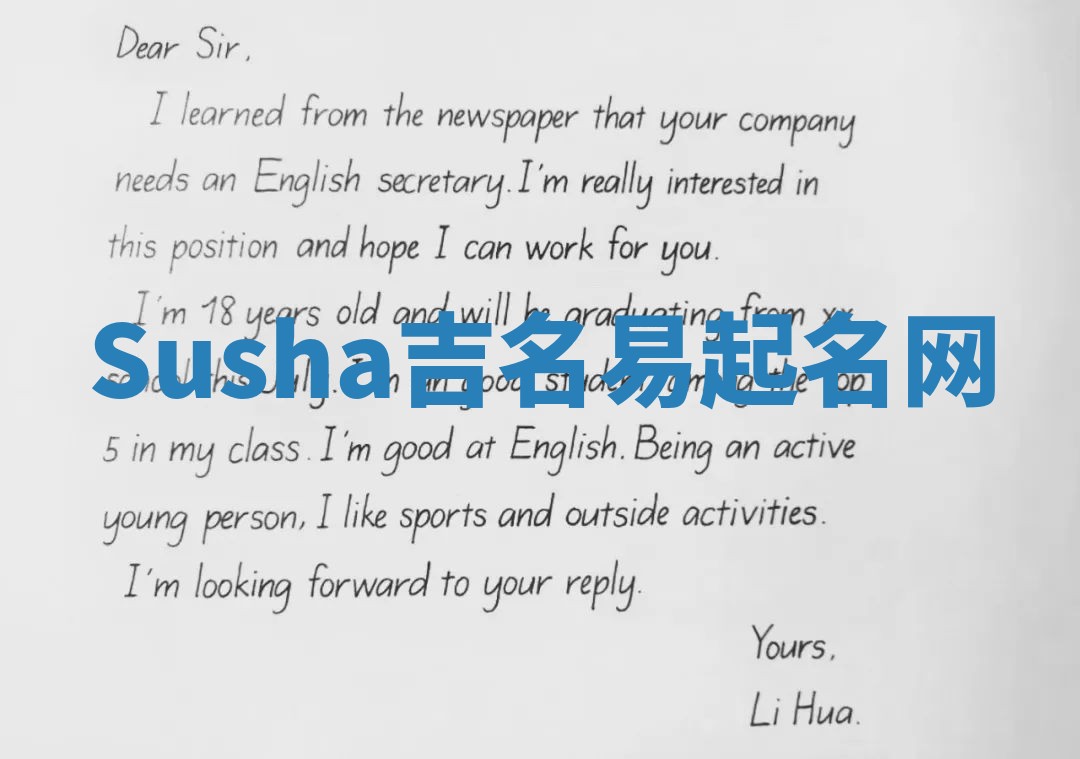 Dear Sir,
I learned from the newspaper that your company
needs an English secretary. I'm really interested in
this position and hope I can work for you.
I'm 18 years old and will be graduating from xx
Susha吉名易起名网
school this July. I'm an good student among the top
5 in my class. I'm good at English. Being an active
young person, I like sports and outside activities.
I'm looking forward to your reply.
Yours,
Li Hua.